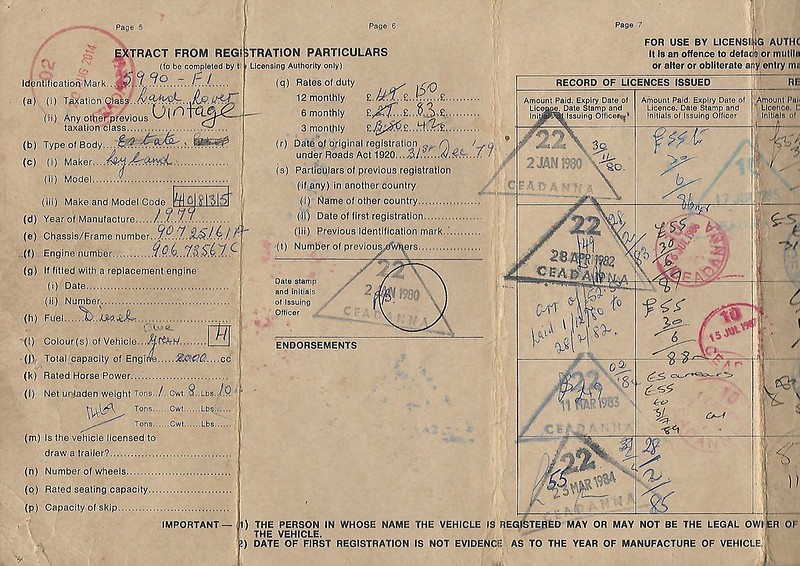 Page 5
EXTRACT FROM REGISTRATION PARTICULARS
(to be completed by the Licensing Authority only)
Identification Mark 5990-FI
(a) (i) Taxation Class Land Rover
Vintage
(ii) Any other previous
taxation class
(b) Type of Body Estate
(c) (i) Maker Leyland
(ii) Model
(iii) Make and Model Code 40835
(d) Year of Manufacture 1979
(e) Chassis/Frame number 90725161A
(f) Engine number 90673567C
(g) If fitted with a replacement engine
(i) Date
(ii) Number
(h) Fuel Diesel
(i) Colour(s) of Vehicle green H
(j) Total capacity of Engine 2000 cc
(k) Rated Horse Power
(l) Net unladen weight Tons 1 Cwt 8 Lbs 10
1469 Tons Cwt Lbs
Tons Cwt Lbs
(m) Is the vehicle licensed to
draw a trailer?
(n) Number of wheels
(o) Rated seating capacity
(p) Capacity of skip
Page 6
(q) Rates of duty
12 monthly £ 49 £ 150 £
6 monthly £ 27 £ 83 £
3 monthly £ 42 £
(r) Date of original registration
under Roads Act 1920 31st Dec '79
(s) Particulars of previous registration
(if any) in another country
(i) Name of other country
(ii) Date of first registration
(iii) Previous identification mark
(t) Number of previous owners
Date stamp
and initials
of Issuing
Officer
22
2 JAN 1980
CEADANNA
ENDORSEMENTS
Page 7
FOR USE BY LICENSING AUTHO
It is an offence to deface or mutila
or alter or obliterate any entry ma
RECORD OF LICENCES ISSUED
RE
Amount Paid. Expiry Date of
Licence, Date Stamp and
Initials of Issuing Officer
Amount Paid. Expiry Date of
Licence, Date Stamp and
Initials of Issuing Officer
22
2 JAN 1980
CEADANNA
30
11
80
22
28 APR 1982
CEADANNA
49
28/2/83
Laid 1/12/80 to
28/2/82.
22
11 MAR 1983
CEADANNA
£49
02
'84
22
23 MAR 1984
CEADANNA
55
28/2/85
£55
30
6
86
£55
30
6
CEADANNA
£55
30
6
88
10
15 JUL 1987
£5 arrears
£55
10
17 JUN
IMPORTANT — (1) THE PERSON IN WHOSE NAME THE VEHICLE IS REGISTERED MAY OR MAY NOT BE THE LEGAL OWNER OF
THE VEHICLE.
2) DATE OF FIRST REGISTRATION IS NOT EVIDENCE AS TO THE YEAR OF MANUFACTURE OF VEHICLE.